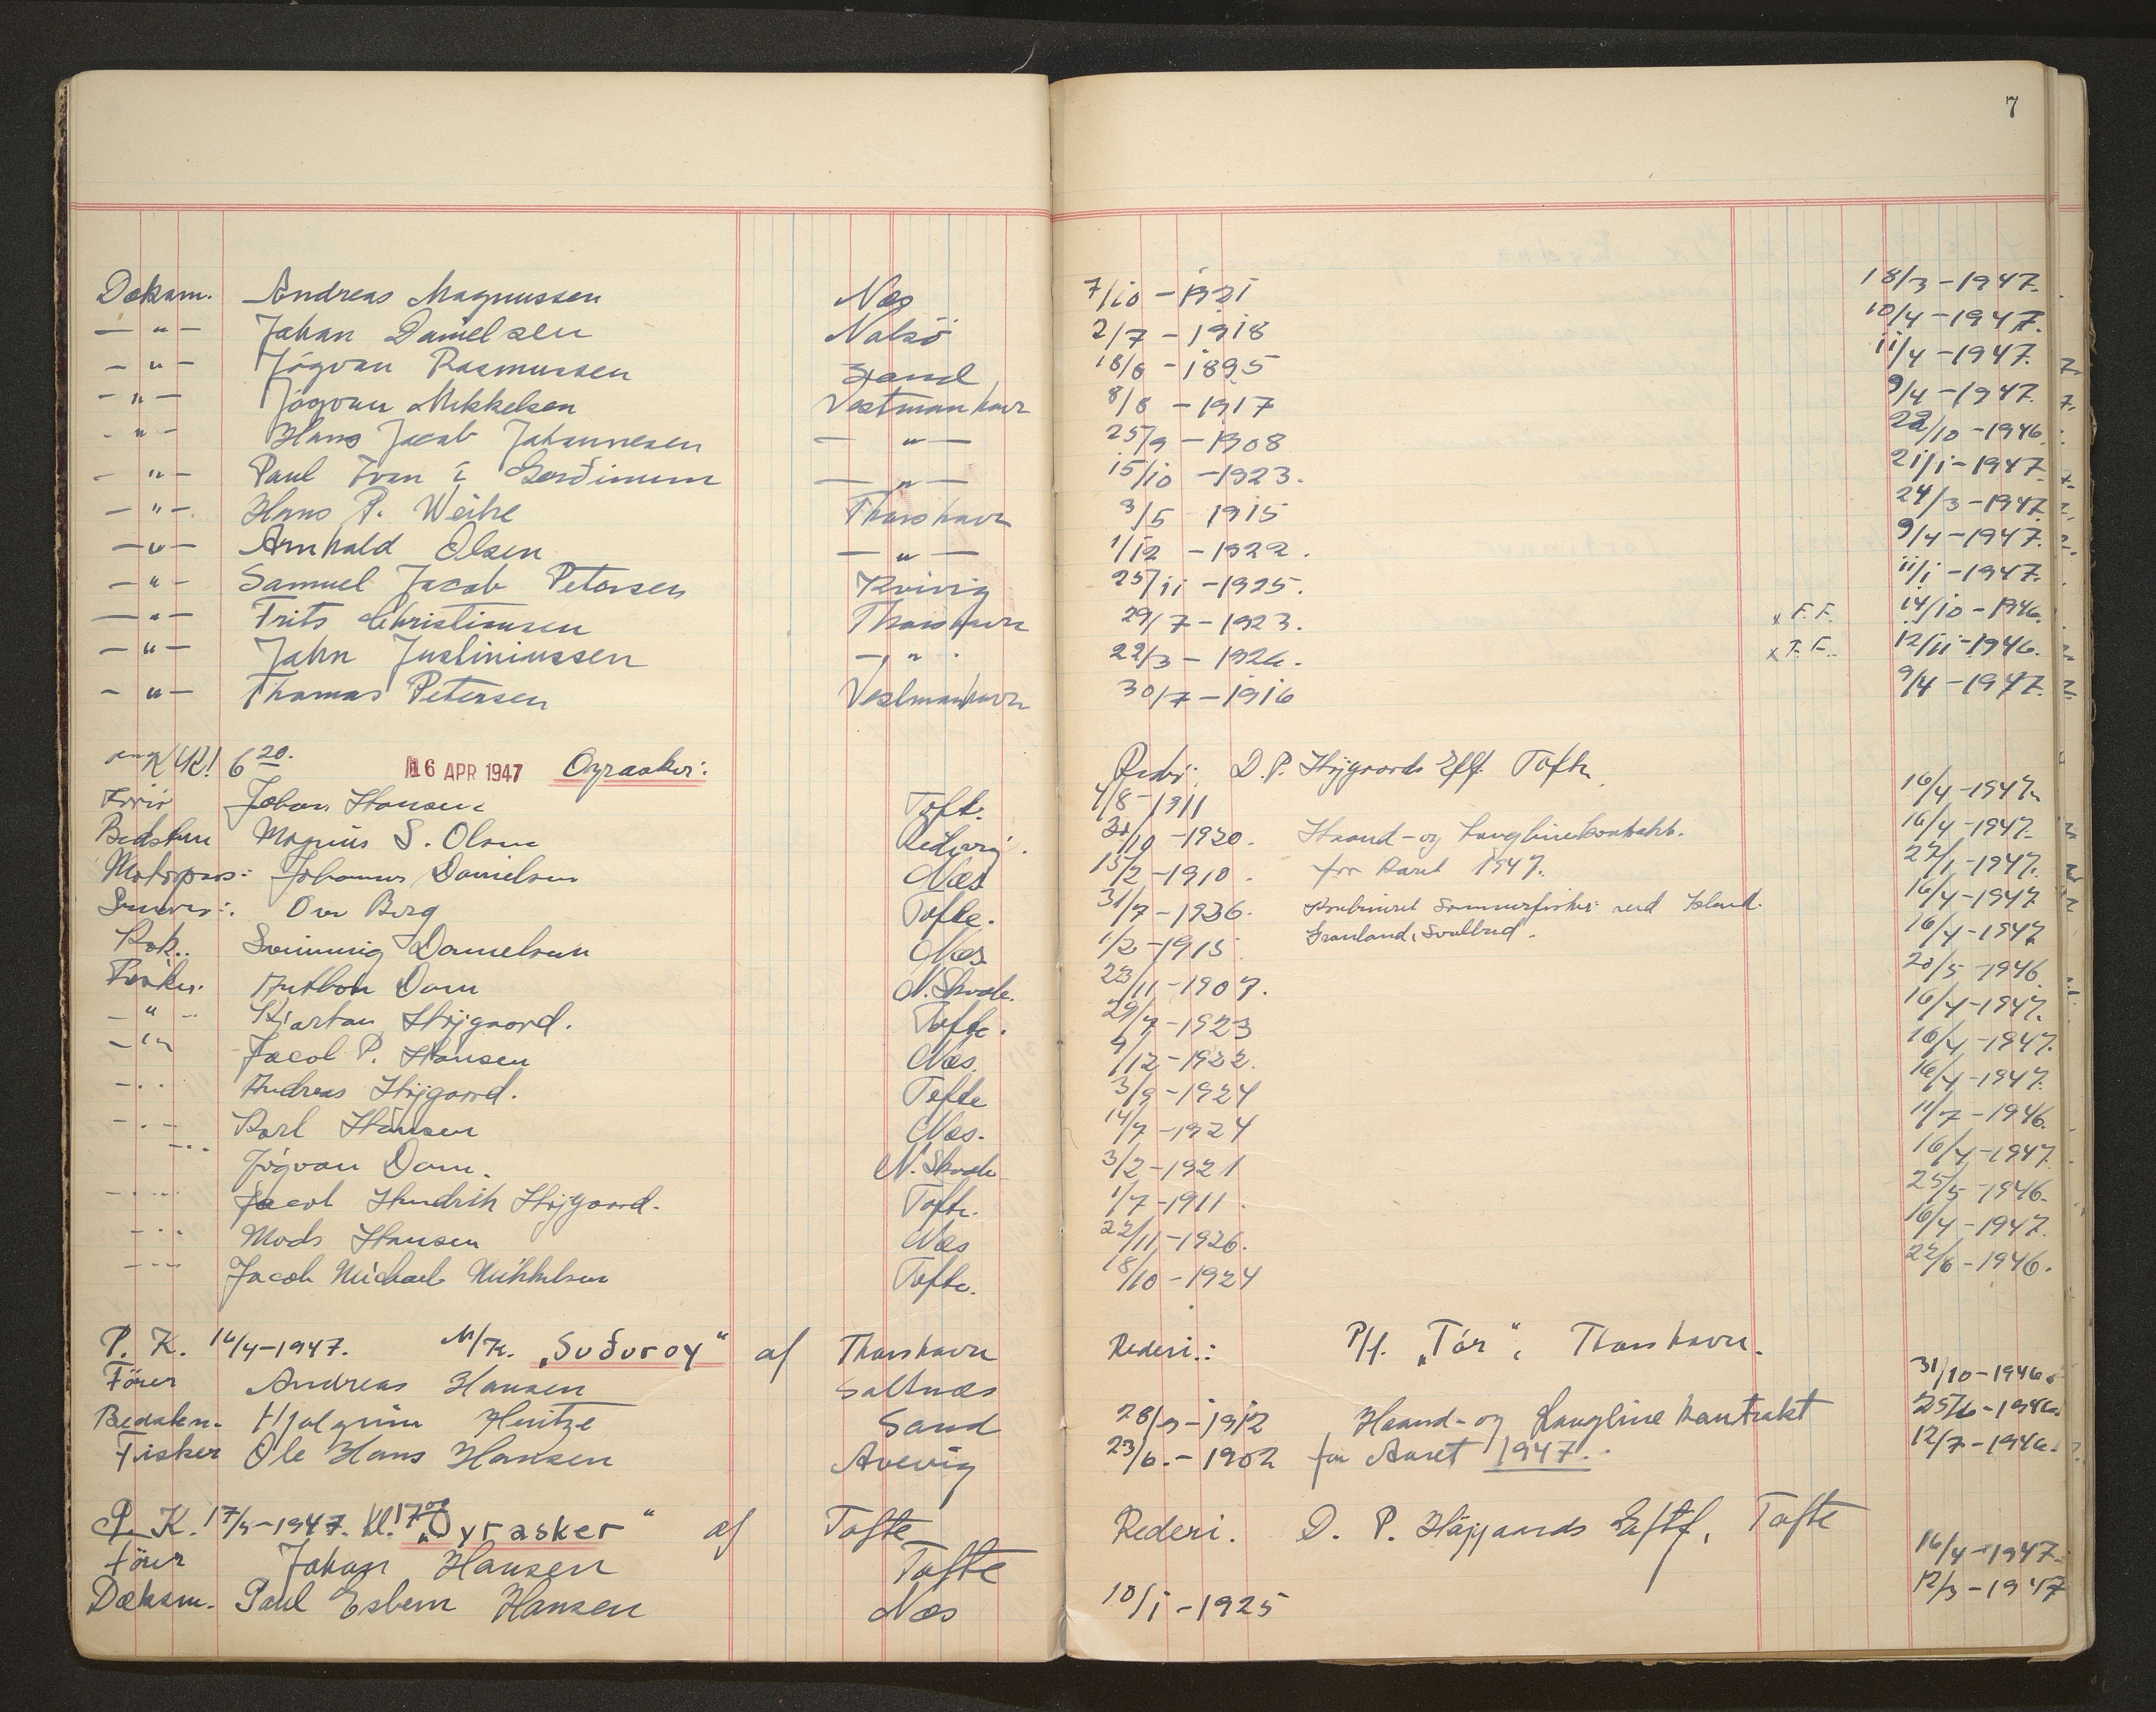 7
Dæksm. Andreas Magnussen Næs 7/10 - 1921 18/3 - 1947.
— " — Johan Danielsen Nolsö 2/7 - 1918 10/4 - 1947.
— " — Jógvan Rasmussen Sand 18/6 - 1895 11/4 - 1947.
— " — Jógvan Mikkelsen Vestmanhavn 8/8 - 1917 9/4 - 1947.
— " — Hans Jacob Johannesen — " — 25/9 - 1908 22/10 - 1946.
— " — Paul í Gerðinum — " — 15/10 - 1923. 21/1 - 1947.
— " — Hans P. Weihe Thorshavn 3/5 1915 24/3 - 1947.
— " — Arnhald Olsen — " — 1/12 - 1922. 9/4 - 1947.
— " — Samuel Jacob Petersen Kvivig 25/11 - 1925. 11/1 - 1947.
— " — Frits Christiansen Thorshavn 29/7 - 1923. x F.F. 14/10 - 1946.
— " — John Justinussen — " . 22/3 - 192 . x F.F. 12/11 - 1946.
— " — Thomas Petersen Vestmanhavn 30/7 - 1916 9/4 - 1947.
6 20. 16 APR 1947 Oyraaker: Rederi: D.P. Højgaards Eftf. Tofte.
Johan Hansen Tofte. 4/8 - 1911 16/4 - 1947.
Bedstem Magnus S. Olsen 30/10 - 1920. Haand- og Langlinekontrakt. 16/4 - 1947.
Motorpas: Johannes Danielsen Næs 15/2 - 1910. for Aaret 1947. 27/1 - 1947.
Ove Berg Tofte. 31/7 - 1926. Kombineret Sommerfiskeri ved Island. 16/4 - 1947
Kok.. Danielsen Næs 1/2 - 1915 Grønland, Svalbard. 16/4 - 1947
Fisker. Dam N. Skaale. 23/11 - 1907. 20/5 - 1946.
— " — Kjartan Højgaard. Tofte. 29/7 - 1923 16/4 - 1947.
— " — Jacob P. Hansen Næs. 9/12 - 1922. 16/4 - 1947.
— . . Andreas Højgaard. Tofte 3/9 - 1924 16/4 - 1947.
— . — Karl Hansen Næs. 14/7 - 1924 11/7 - 1946.
— . . Jógvan Dam. N. Skaale 3/2 - 1921 16/4 - 1947.
— . — Jacob Hendrik Højgaard. Tofte. 1/7 - 1911 25/5 - 1946.
— . . Mads Hansen Næs 22/11 - 1926. 16/4 - 1947.
— . — Jacob Michael Mikkelsen Tofte. 18/10 - 1924 22/6 - 1946.
P. K. 16/4 - 1947. M/K. „Suðuroy“ af Thorshavn Rederi.: P/f. „Tór“, Thorshavn.
Förer Andreas Hansen Saltnæs 31/10 - 1946.
Bedstem. Hjalgrim Heintze Sand 28/9 - 1912 Haand- og Langline kontrakt 25/6 - 1946.
Fisker Ole Hans Hansen Avevig 23/6. - 1902 for Aaret 1947. 12/7 - 1946.
P. K. 17/4 - 1947. Kl. 17 00 „Oyrasker“ af Tofte Rederi. D. P. Højgaards Eftf, Tofte
Förer Johan Hansen Tofte 16/4 - 1947.
Dæksm. Paul Esbern Hansen Næs 10/1 - 1925 12/3 - 1947